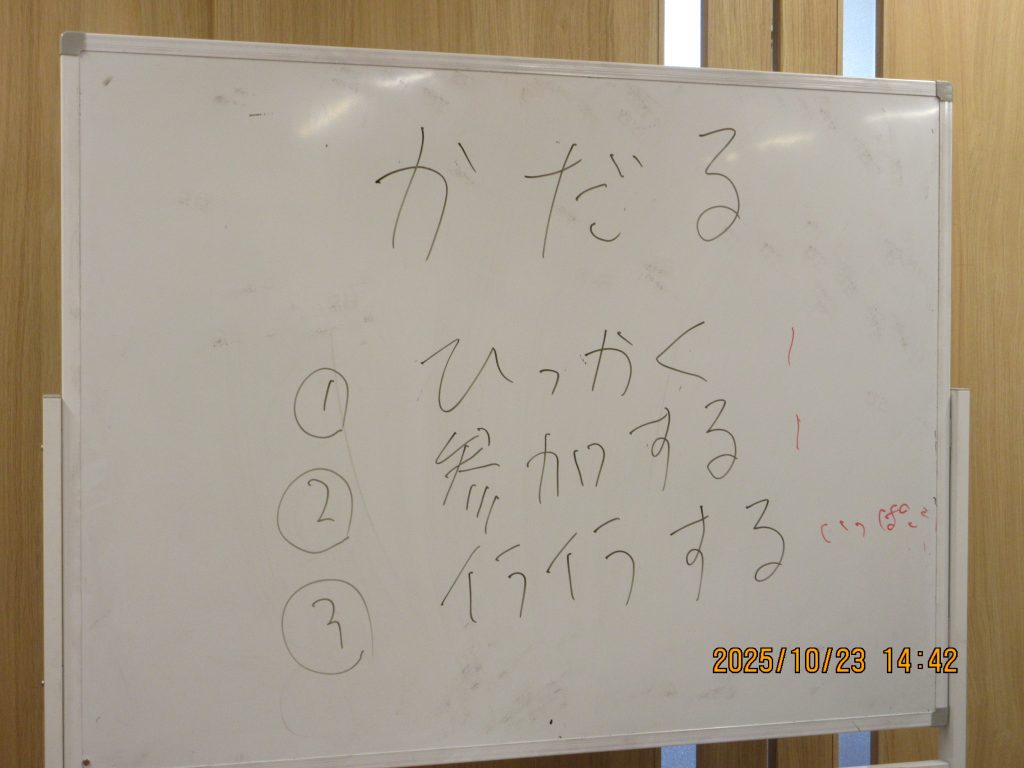 かだる
① ひっかく 1
② 参加する 1
③ 行行する いっぱい
2025/10/23 14:42